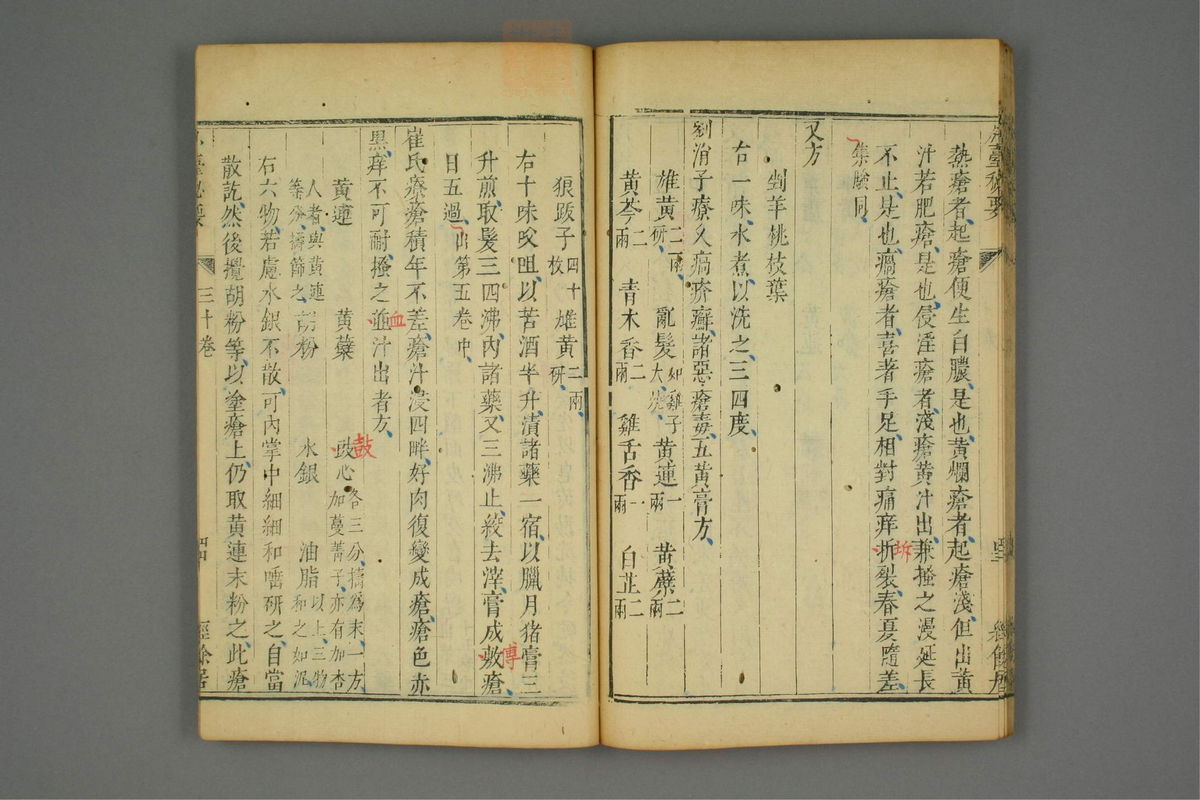 熱瘡者起瘡便生白膿是也黃爛瘡者起瘡淺但出黃
汁若肥瘡是也侵淫瘡者淺瘡黃汁出兼搔之漫延長
不止是也瘑瘡者喜著手足相對痛痒折裂春夏隨差
坼
集驗同
又方
剉羊桃枝葉
右一味水煮以洗之三四度
劉涓子療久瘑疥癬諸惡瘡毒五黃膏方
雄黃二兩研 亂髮如雞子大燒 黃連一兩 黃蘗二兩
黃芩二兩 青木香二兩 雞舌香一兩 白芷二兩
狼跋子四十枚 雄黃二兩研
右十味㕮咀以苦酒半升漬諸藥一宿以臘月猪膏三
升煎取髮三四沸內諸藥又三沸止絞去滓膏成敷瘡
傅
日五過出第五卷中
崔氏療瘡積年不差瘡汁浸四畔好肉復變成瘡瘡色赤
黑痒不可耐搔之並汁出者方
血
黃連 黃蘗 豉心各三分擣為末一方加蔓菁子亦有加杏
鼓
人者與黃連等分擣篩之 胡粉 水銀 油脂以上三物和之如泥
右六物若慮水銀不散可內掌中細細和唾研之自當
散訖然後攪胡粉等以塗瘡上仍取黃連末粉之此瘡
臺秘要 三十卷 經餘居